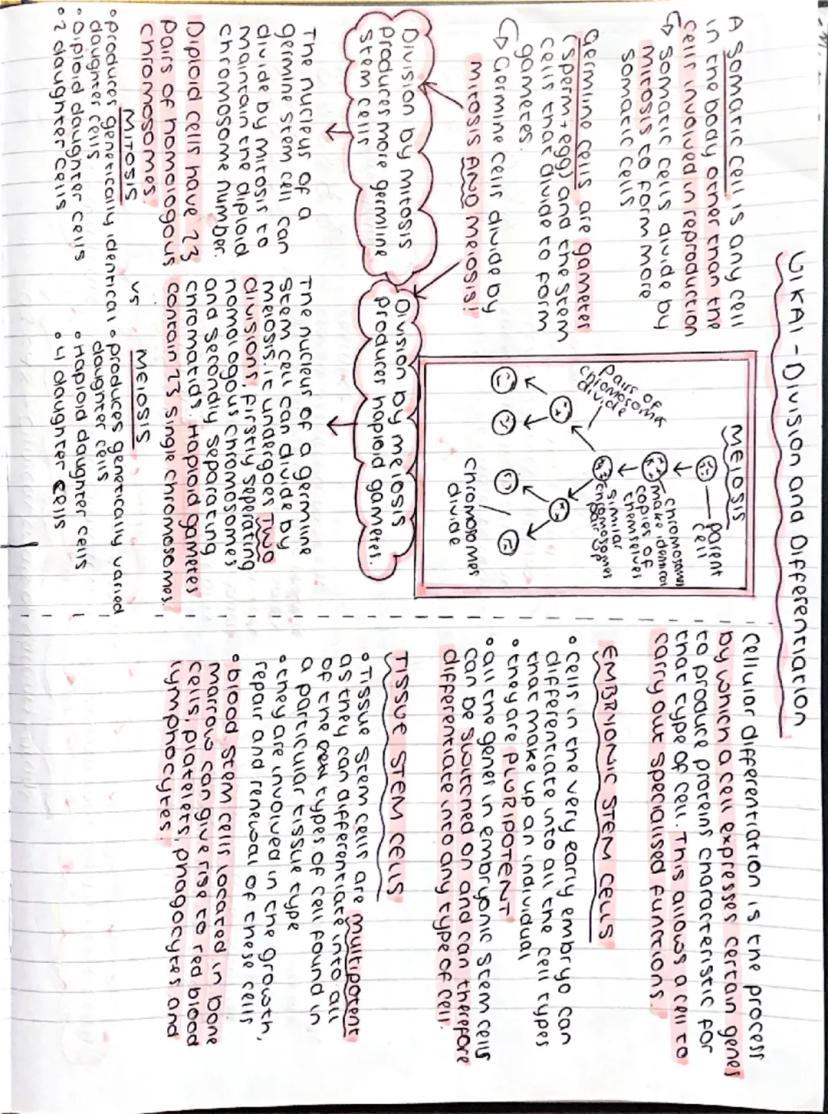 U1KA1 - Division and Differentiation
A somatic cell is any cell
in the body other than the
cells involved in reproduction
↳ somatic cells divide by
mitosis to form more
somatic cells
Germline cells are gametes
(sperm + egg) and the stem
cells that divide to form
gametes.
↳ Germline cells divide by
mitosis AND meiosis!
Division by mitosis
produces more germline
stem cells
The nucleus of a
germine stem cell can
divide by mitosis to
maintain the diploid
chromosome number.
Diploid cells have 23
pairs of homologous
chromosomes.
MEIOSIS
parent
cell
chromosomes
make identical
copies of
themselves
similar
chromosomes
pair up
Pairs of
chromosomes
divide
chromosomes
divide
Division by meiosis
produces haploid gametes.
The nucleus of a germline
stem cell can divide by
meiosis. it undergoes TWO
divisions, firstly seperating
homologous chromosomes
and secondly separating
chromatids. Haploid gametes
contain 23 single chromosomes.
MITOSIS vs MEIOSIS
• produces genetically identical
daughter cells
• Diploid daughter cells
• 2 daughter cells
• produces genetically varied
daughter cells
• Haploid daughter cells
• 4 daughter cells
cellular differentiation is the process
by which a cell expresses certain genes
to produce proteins characteristic for
that type of cell. This allows a cell to
carry out specialised functions.
EMBRYONIC STEM CELLS
• cells in the very early embryo can
differentiate into all the cell types
that make up an individual
• they are PLURIPOTENT
• all the genes in embryonic stem cells
can be switched on and can therefore
differentiate into any type of cell.
TISSUE STEM CELLS
• Tissue stem cells are multipotent
as they can differentiate into all
of the types of cell found in
a particular tissue type
• they are involved in the growth,
repair and renewal of these cells
• blood stem cells located in bone
marrow can give rise to red blood
cells, platelets, phagocytes and
lymphocytes.